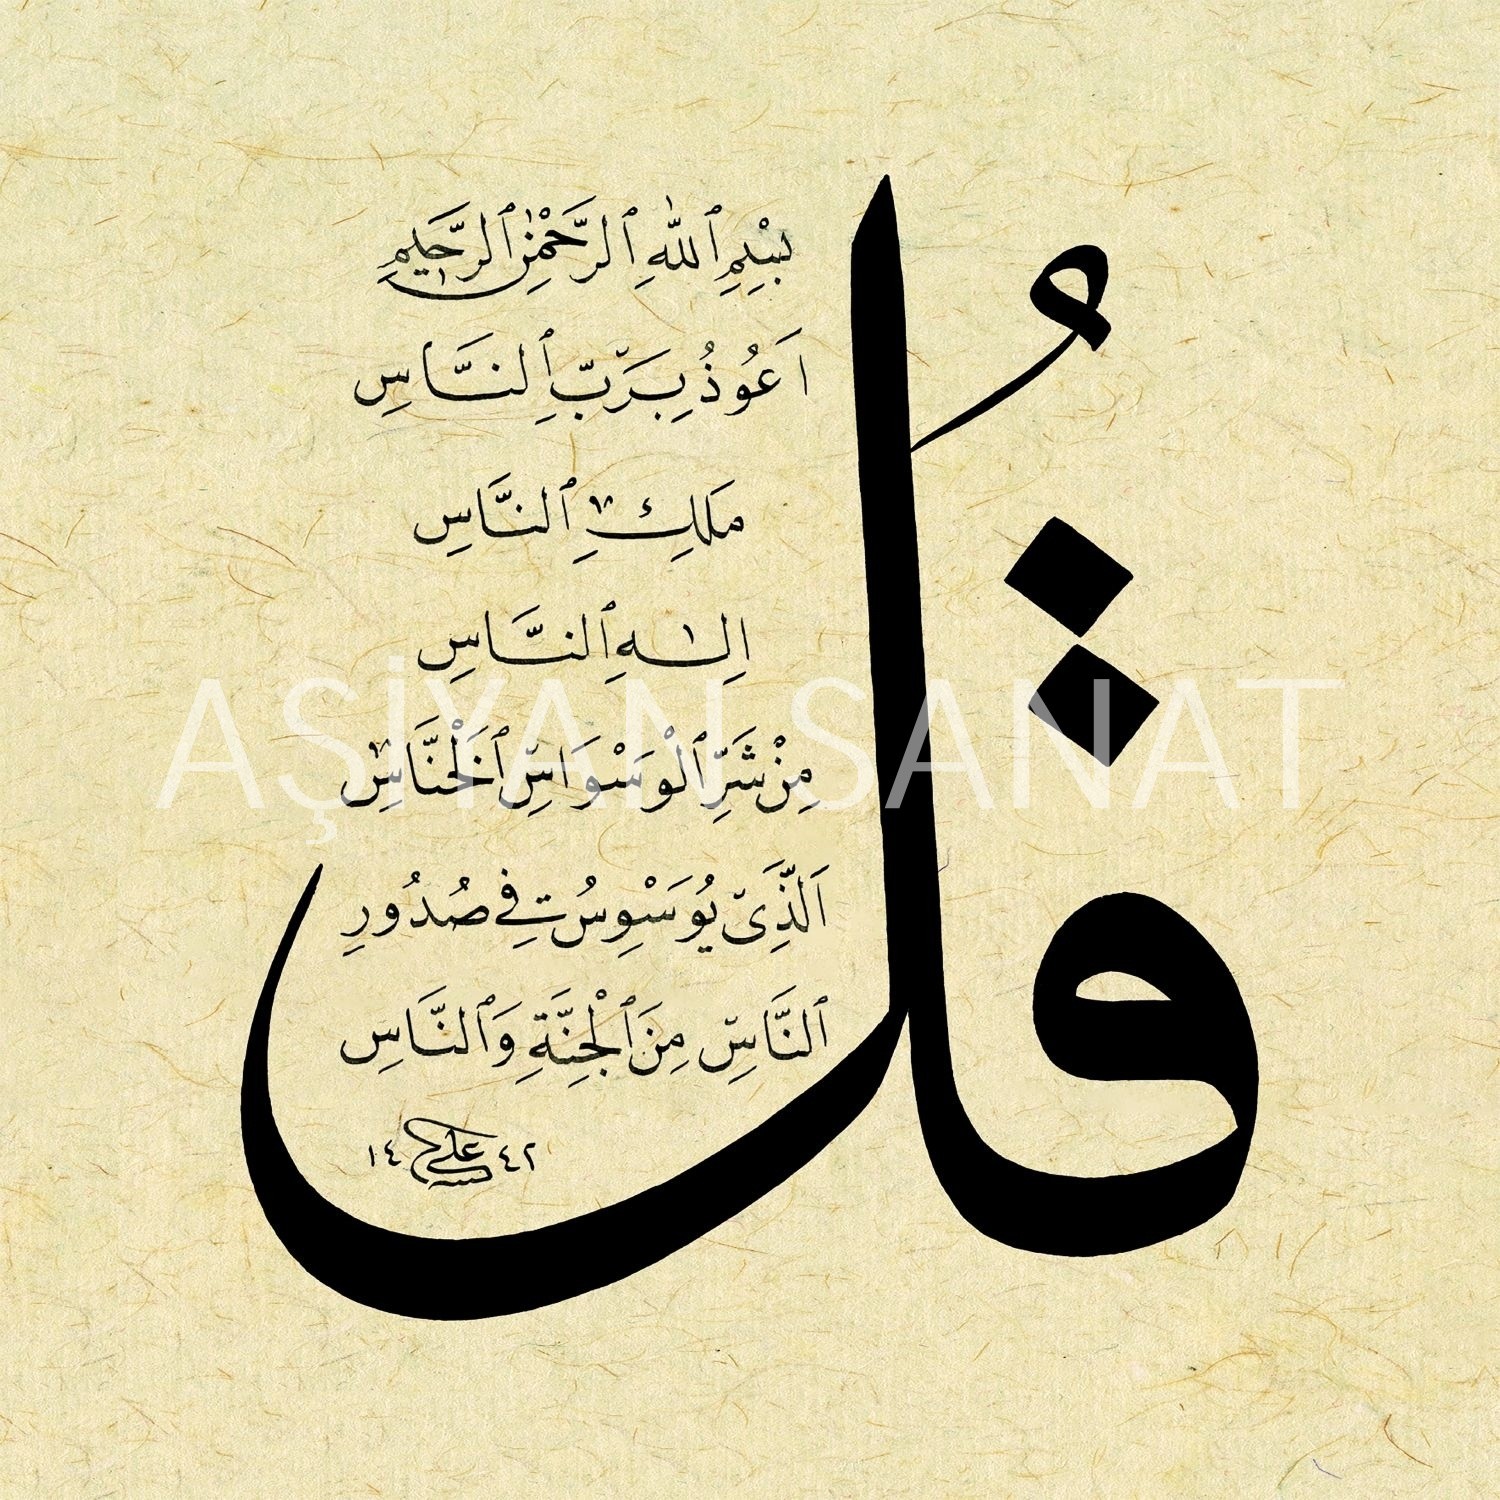 قُل
بِسْمِ ٱللّٰهِ ٱلرَّحْمٰنِ ٱلرَّحِيمِ
اَعُوذُ بِرَبِّ ٱلنَّاسِ
مَلِكِ ٱلنَّاسِ
اِلٰهِ ٱلنَّاسِ
مِنْ شَرِّ ٱلْوَسْوَاسِ ٱلْخَنَّاسِ
اَلَّذِى يُوَسْوِسُ فِى صُدُورِ
ٱلنَّاسِ مِنَ ٱلْجِنَّةِ وَٱلنَّاسِ
١٤ ٤٢
AŞİYAN SANAT